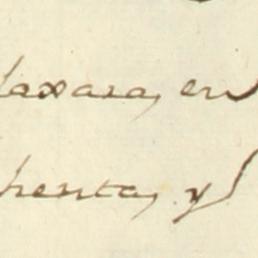 laxara, en
henta, y